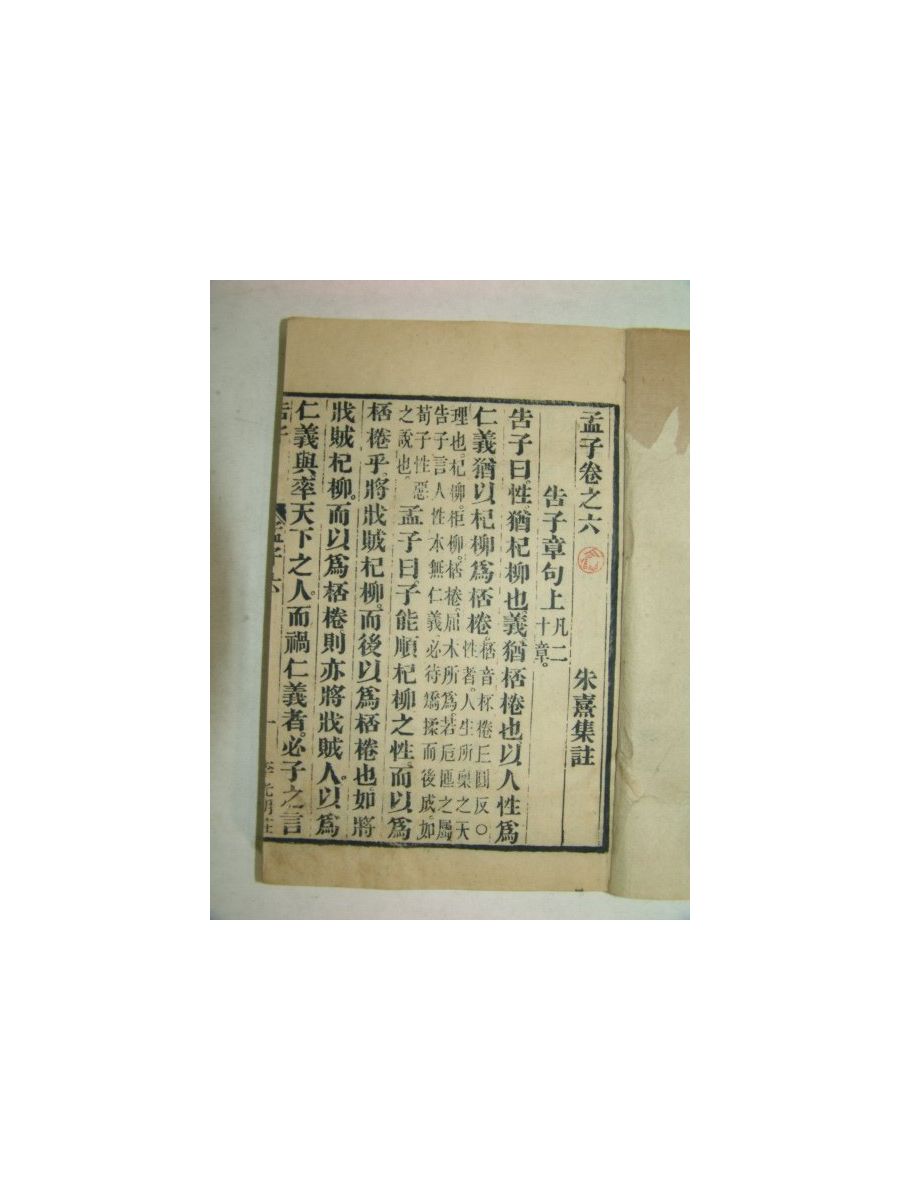 孟子卷之六　朱熹集註
告子章句上 凡二十章。
告子曰。性猶杞柳也。義猶桮棬也。以人性爲
仁義。猶以杞柳爲桮棬。桮音杯棬丘圓反○性者人生所稟之天
理也。杞柳。柜柳。桮棬。屈木所爲。若巵匜之屬
告子言人性本無仁義。必待矯揉而後成。如
荀子性惡
之說也。孟子曰。子能順杞柳之性。而以爲
桮棬乎。將戕賊杞柳。而後以爲桮棬也。如將
戕賊杞柳。而以爲桮棬則亦將戕賊人。以爲
仁義與。率天下之人。而禍仁義者。必子之言